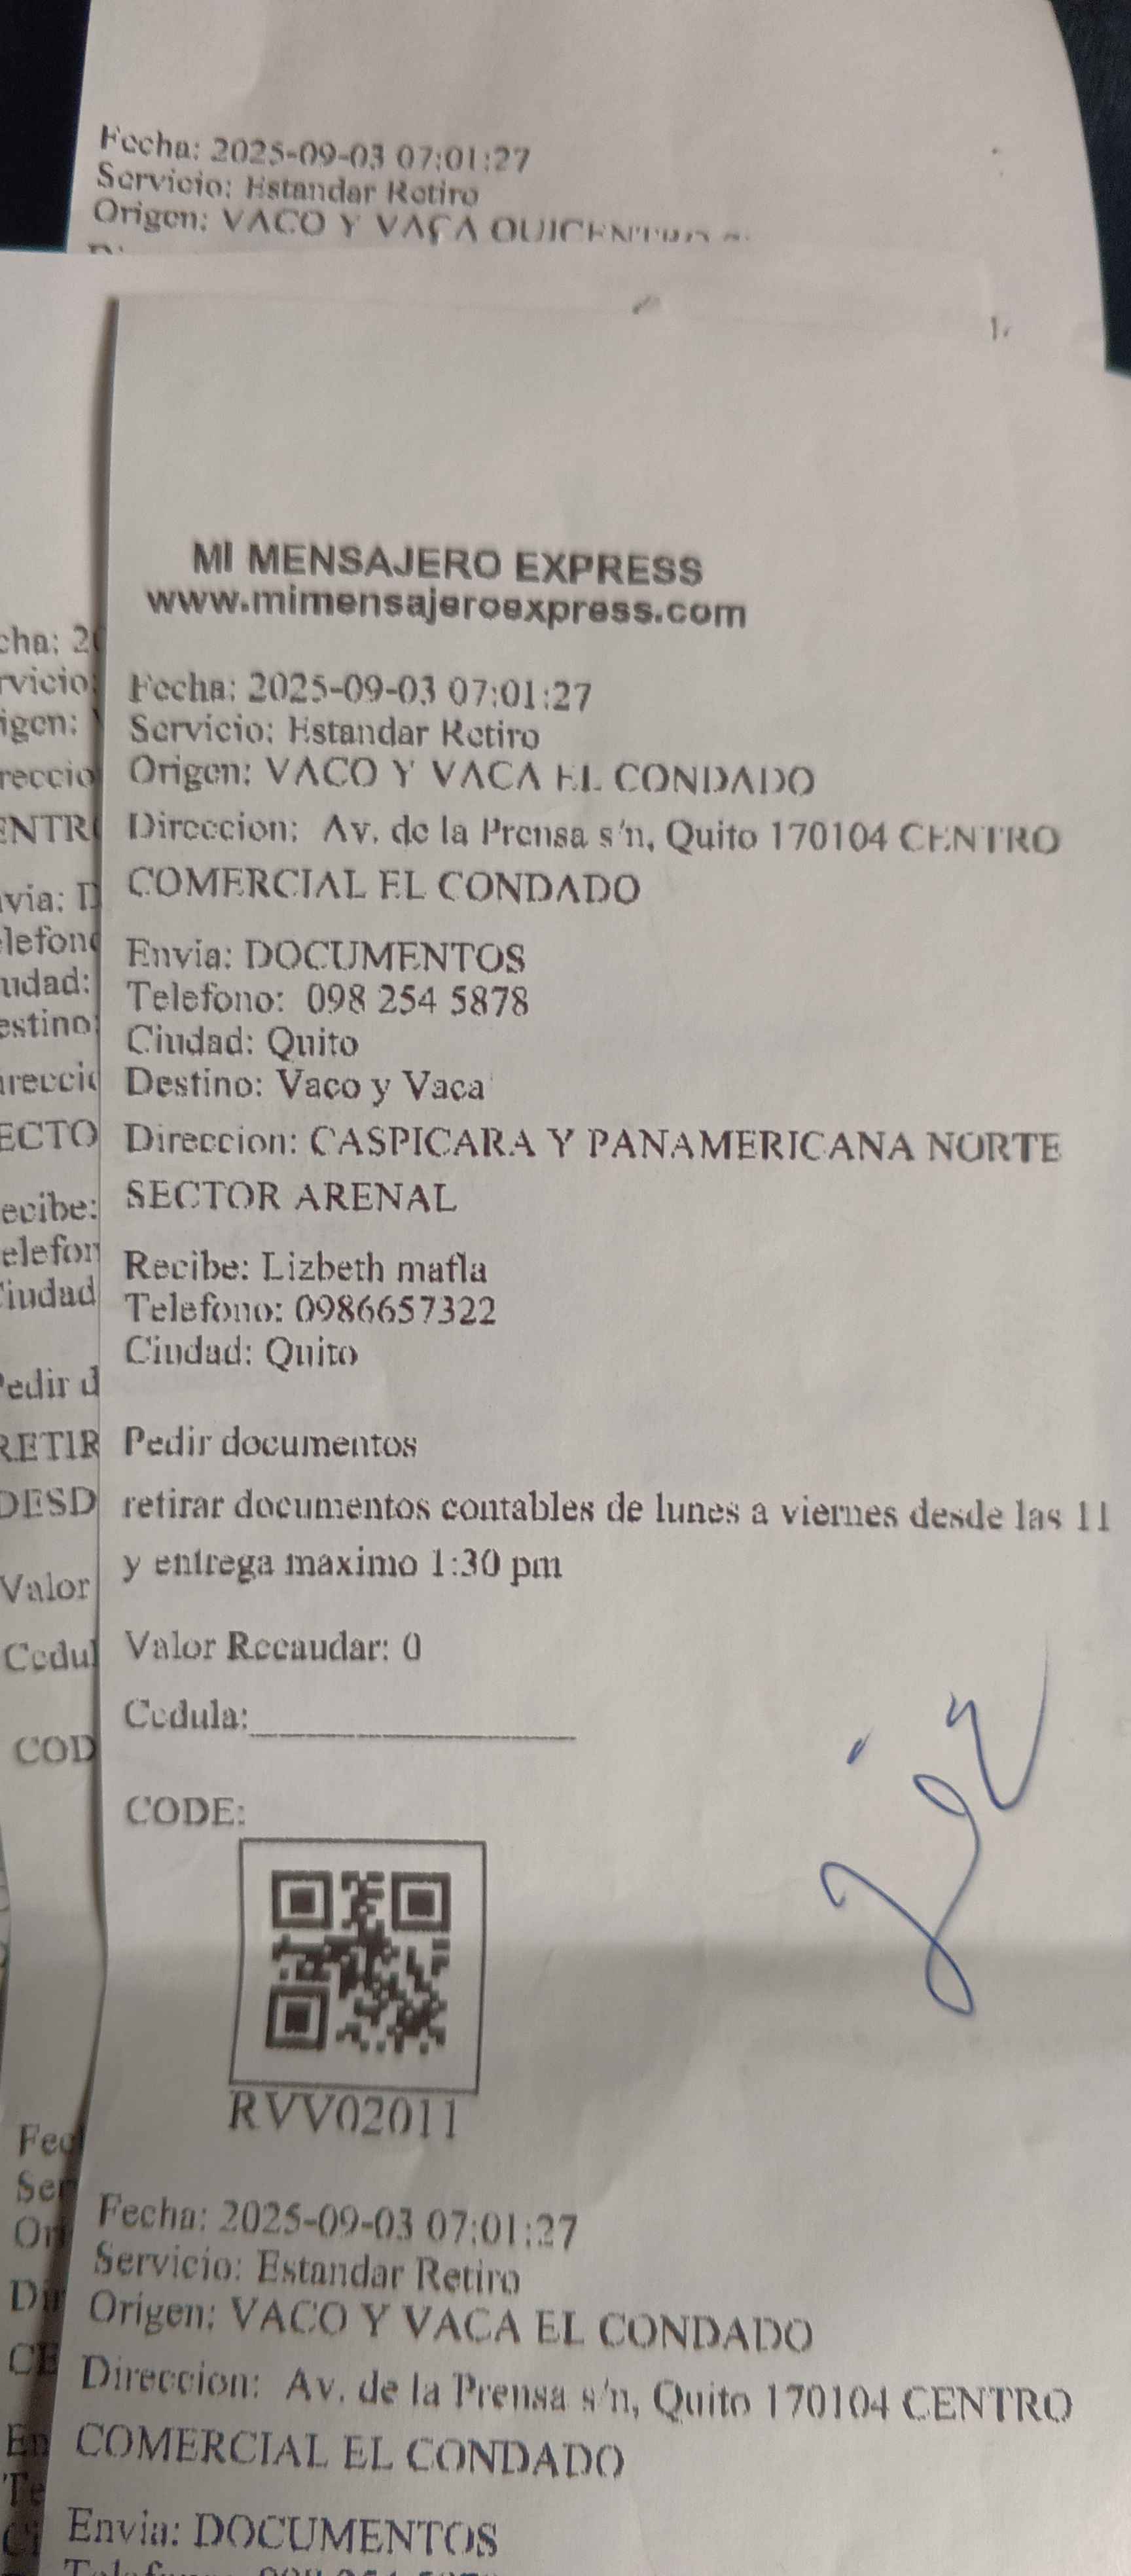 Fecha: 2025-09-03 07:01:27
Servicio: Estandar Retiro
Origen: VACO Y VACA QUICENTRO
MI MENSAJERO EXPRESS
www.mimensajeroexpress.com
Fecha: 2025-09-03 07:01:27
Servicio: Estandar Retiro
Origen: VACO Y VACA EL CONDADO
Direccion: Av. de la Prensa s/n, Quito 170104 CENTRO
COMERCIAL EL CONDADO
Envia: DOCUMENTOS
Telefono: 098 254 5878
Ciudad: Quito
Destino: Vaco y Vaca
Direccion: CASPICARA Y PANAMERICANA NORTE
SECTOR ARENAL
Recibe: Lizbeth mafla
Telefono: 0986657322
Ciudad: Quito
Pedir documentos
retirar documentos contables de lunes a viernes desde las 11
y entrega maximo 1:30 pm
Valor Recaudar: 0
Cedula:
CODE:
RVV02011
Fecha: 2025-09-03 07:01:27
Servicio: Estandar Retiro
Origen: VACO Y VACA EL CONDADO
Direccion: Av. de la Prensa s/n, Quito 170104 CENTRO
COMERCIAL EL CONDADO
Envia: DOCUMENTOS